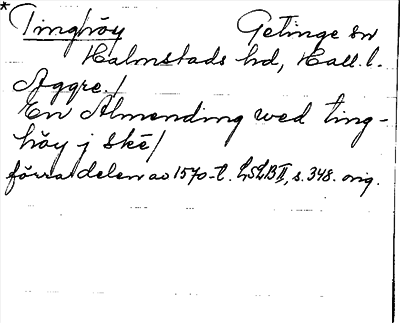 * Tinghöy Getinge sn
Halmstads hd, Hall. l.
Aggre./
En Almending wed ting-
höy j Ske/
förra delen av 1570-t. LSLB II, s. 348. orig.